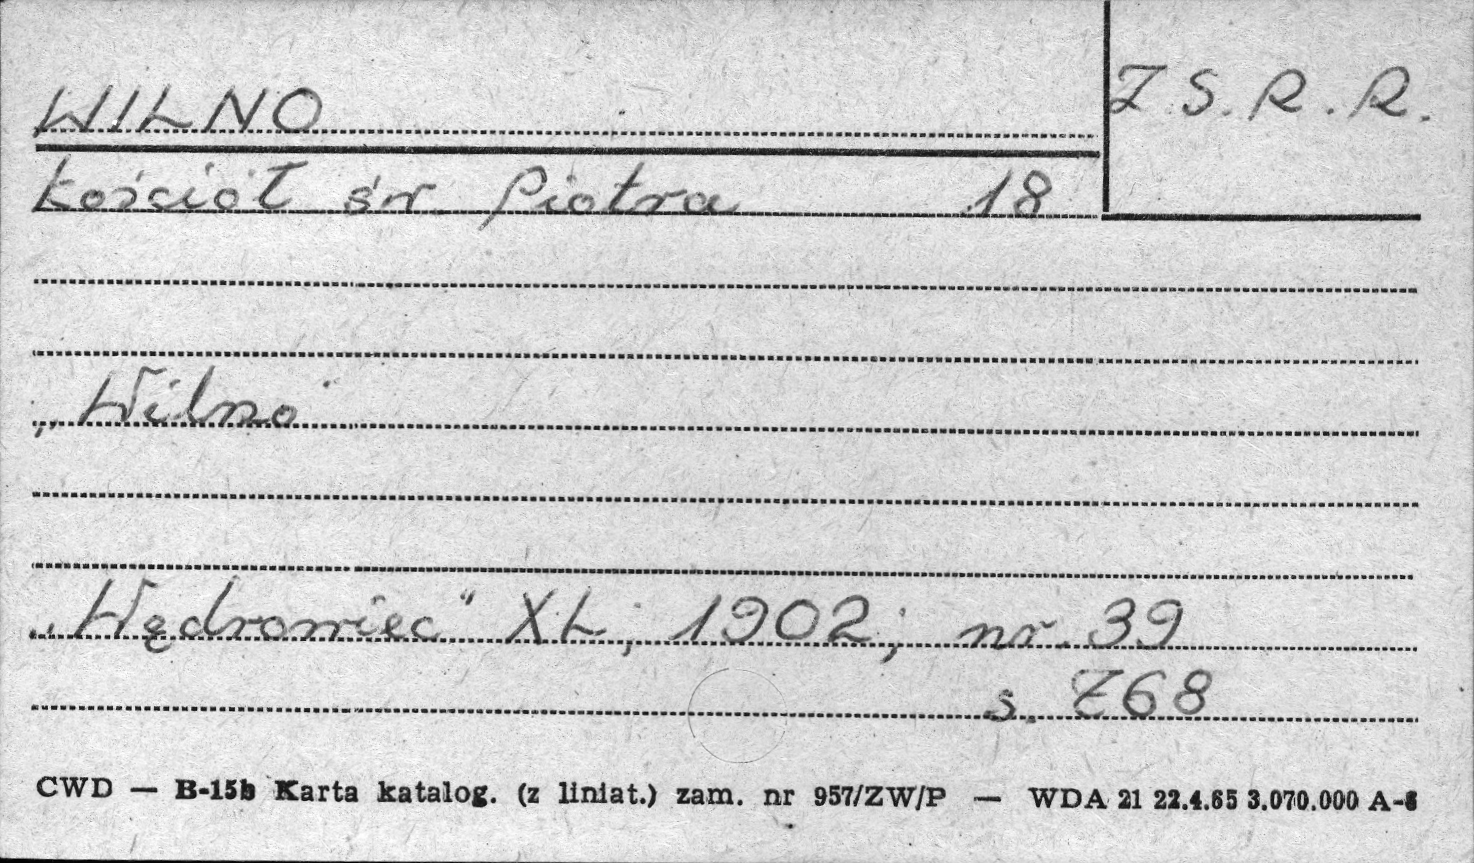 WILNO
Z S. R. R.
kościół św. Piotra 18
„Wilno"
„Wędrowiec" XL; 1902; nr. 39
s. 768
CWD — B-15b Karta katalog. (z liniat.) zam. nr 957/ZW/P — WDA 21 22.4.65 3.070.000 A-8